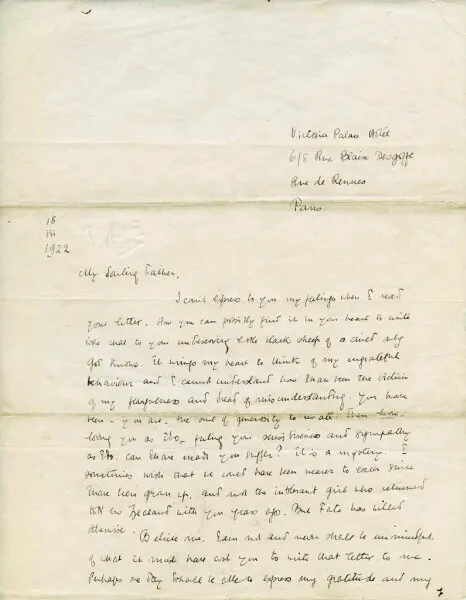 Victoria Palace Hotel
6/8 Rue Blaise Desgoffe
Rue de Rennes
Paris.
18
iii
1922
My darling Father,
I can't express to you my feelings when I read
your letter. How you can possibly find it in your heart to write
like that to your undeserving little black sheep of a child only
God knows. It wrings my heart to think of my ungrateful
behaviour and I cannot understand how I have been the victim
of my fearfulness and dread of misunderstanding. You have
been - you are - the soul of generosity to us all. Then how
loving you as I do - feeling your sensitiveness and sympathy
as I do can I have made you suffer? It is a mystery. I
sometimes wish that we could have been nearer to each since
I have been grown up, and not the intolerant girl who returned
to New Zealand with you years ago. But Fate has willed
otherwise.
Believe me. I am not and never shall be unmindful
of what it must have cost you to write that letter to me.
Perhaps one day I shall be able to express my gratitude and my